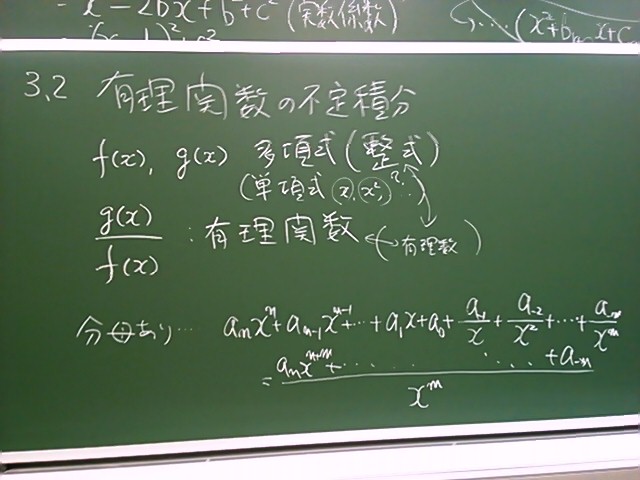 x² - 2bx + b² + c² (実数係数)
(x²+b
x+c
3.2 有理関数の不定積分
f(x), g(x) 多項式(整式)
(単項式 x, x², ??)
g(x)/f(x) : 有理関数 ↔ 有理数)
分母あり… aₙxⁿ+aₙ₋₁xⁿ⁻¹+…+a₁x+a₀+a₋₁/x+a₋₂/x²+…+a₋ₘ/xᵐ
= aₙxⁿ⁺ᵐ+…… …… +a₋ₘ / xᵐ